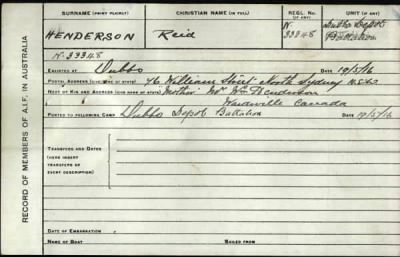 SURNAME (PRINT PLAINLY) CHRISTIAN NAME (IN FULL) REGL. No. (IF ANY) UNIT (IF ANY)
HENDERSON Reid N. 33348 Dubbo Depot Battalion
N. 33348
ENLISTED AT Dubbo DATE 10/5/16
POSTAL ADDRESS (GIVE NAME OF STATE) 76 William Street North Sydney N.S.W.
NEXT OF KIN AND ADDRESS (GIVE NAME OF STATE) Mother Mrs Wm Henderson
Wardsville Canada
POSTED TO FOLLOWING CAMP Dubbo Depot Battalion DATE 10/5/16
TRANSFERS AND DATES
(HERE INSERT
TRANSFERS OF
EVERY DESCRIPTION)
DATE OF EMBARKATION
NAME OF BOAT SAILED FROM
RECORD OF MEMBERS OF A.I.F. IN AUSTRALIA